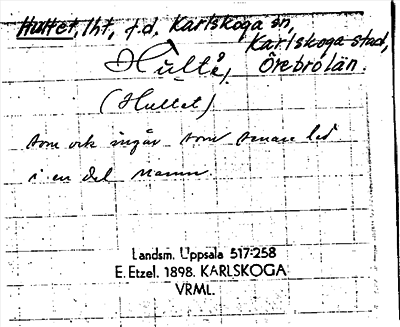 Hultet, lht, f.d. Karlskoga sn,
Karlskoga stad,
Örebro län.
Hultå,
(Hultet)
som ock ingår som senare led
i en del namn.
Landsm. Uppsala 517:258
E. Etzel. 1898. KARLSKOGA
VRML.